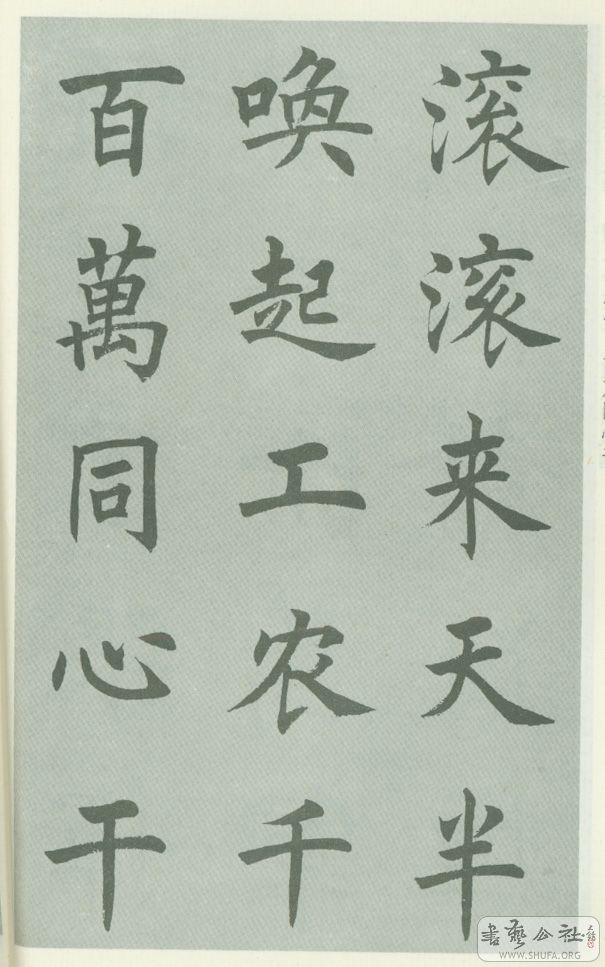 滚滚来天半
唤起工农千
百萬同心干
书艺公社
WWW.SHUFA.ORG